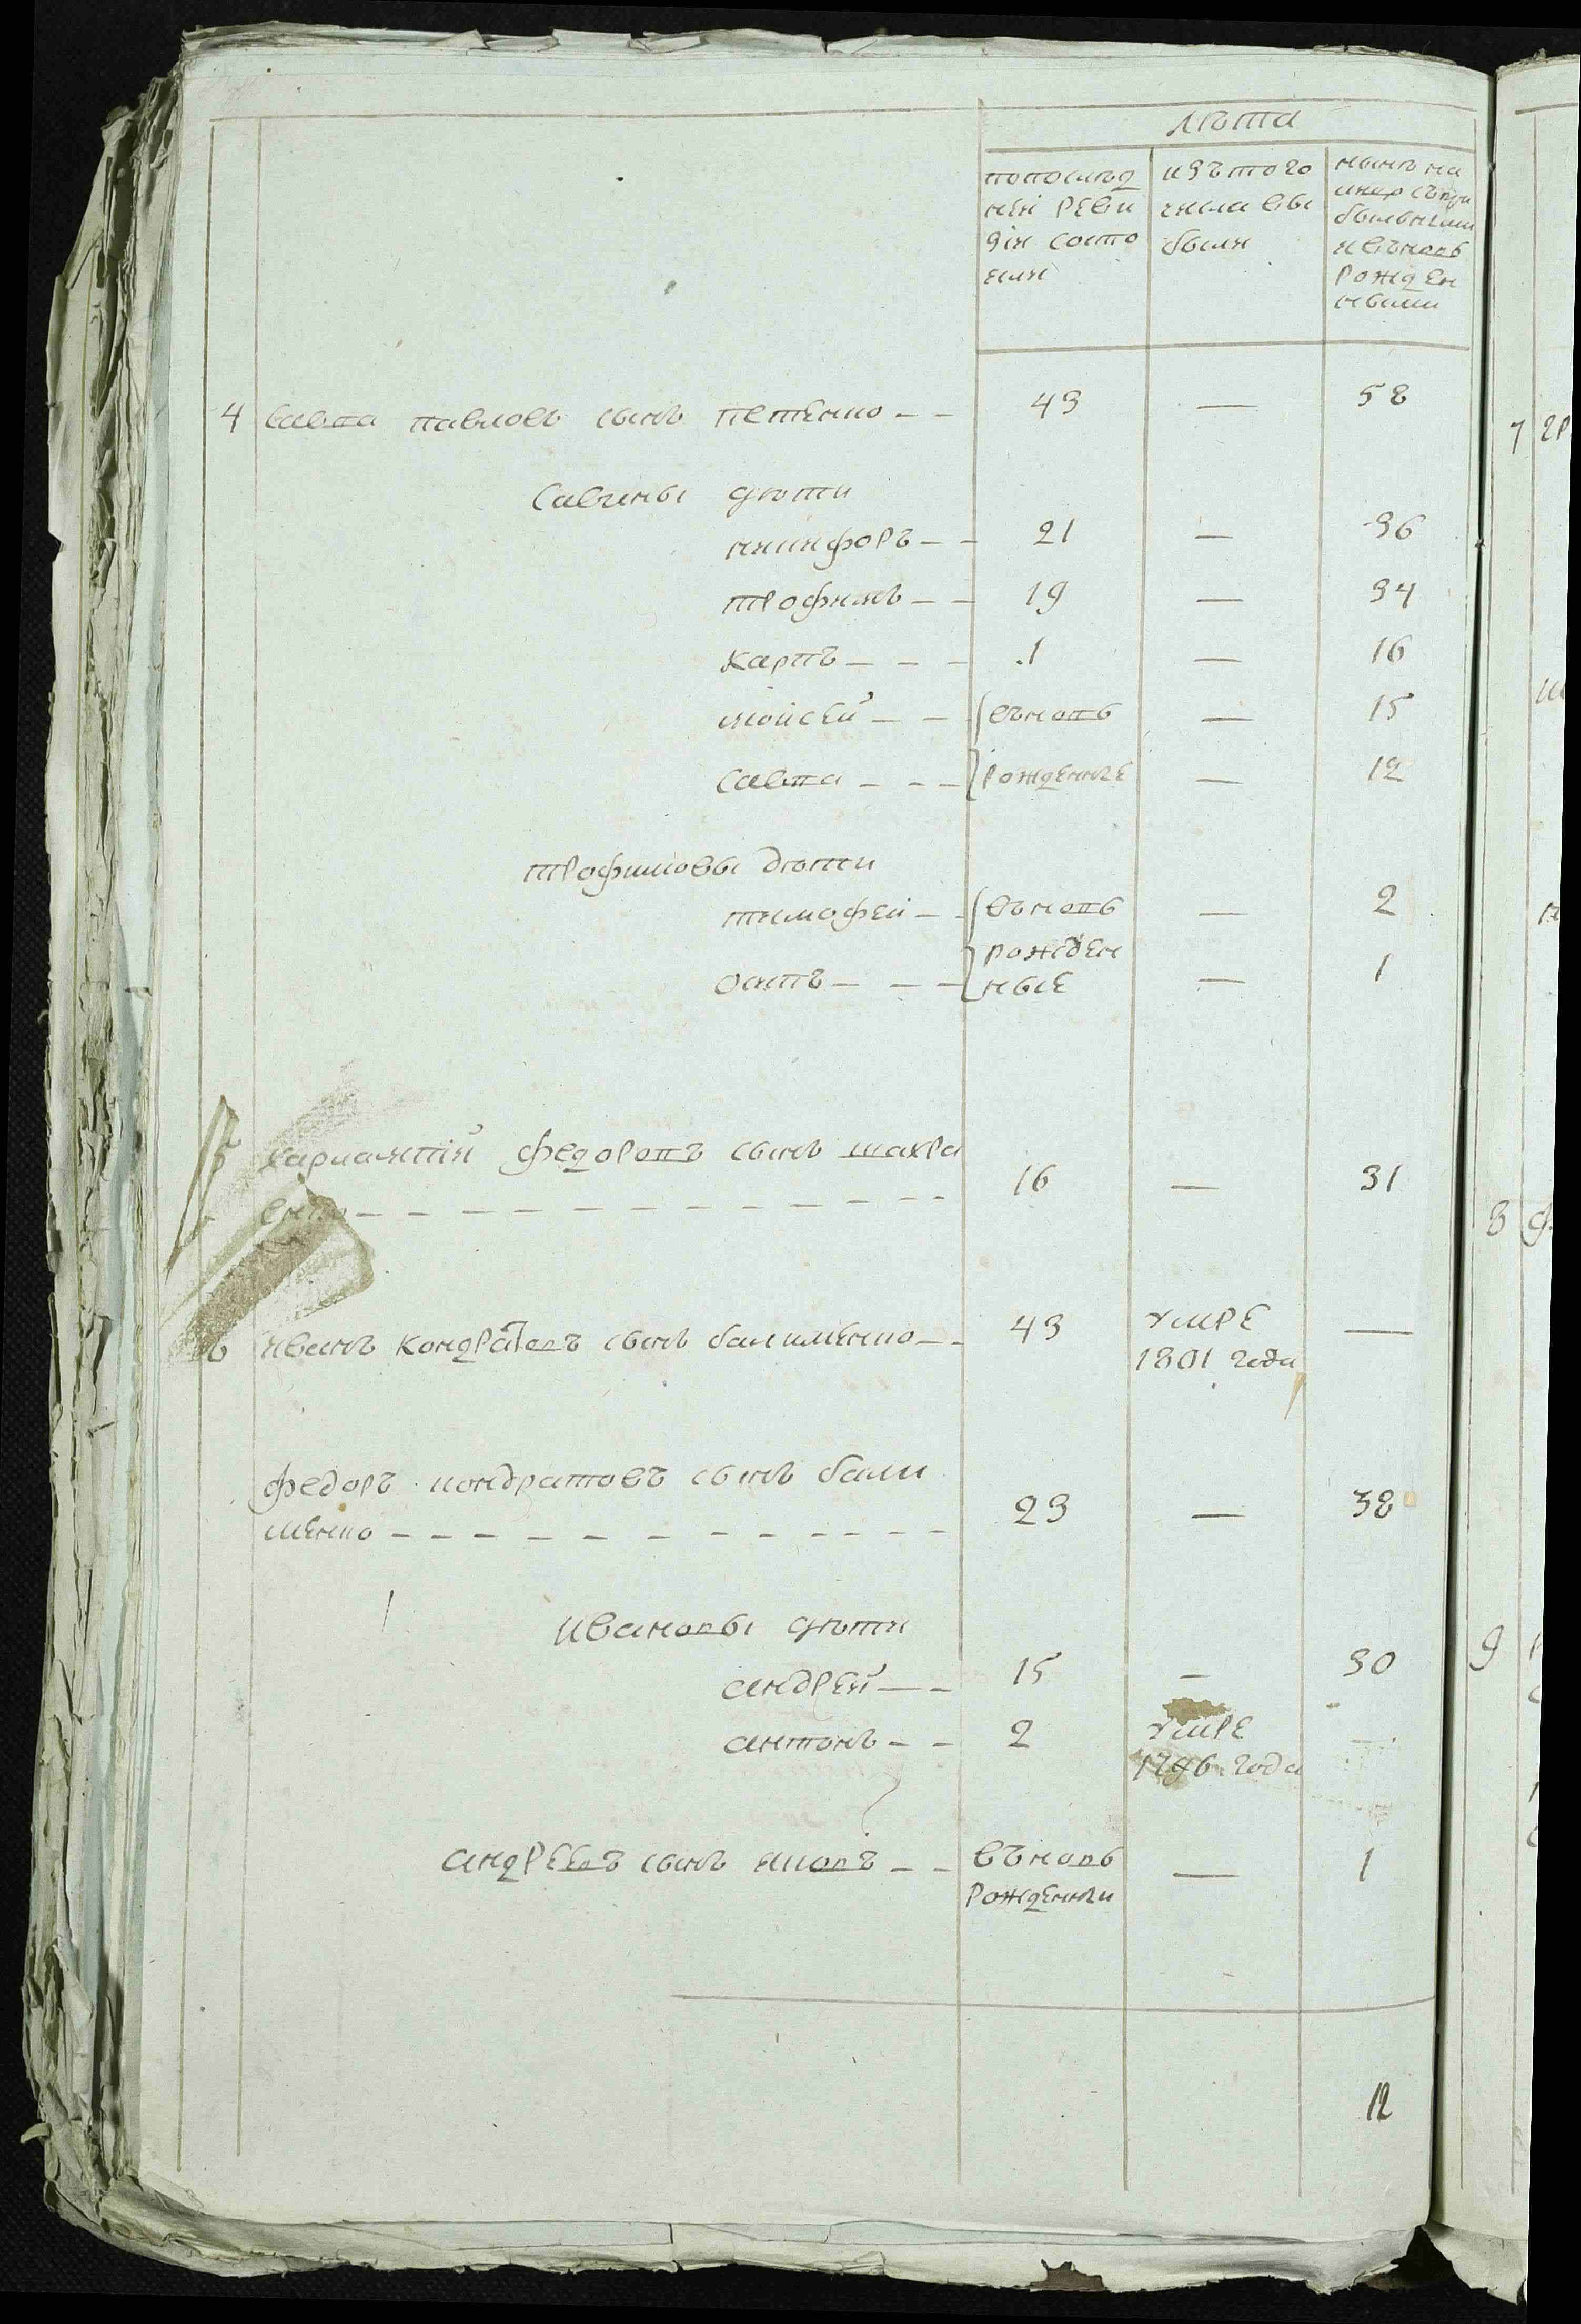 лѣта
попослѣд
ней реви
зіи состо
яли
изъ того
числа вы
были
нынѣ на
лицо съпри
былыми
и въновь
рожден
ными
4 Савва павловъ сынъ петенко — — 43 — 58
Савины дѣти
никифоръ — — 21 — 36
трофимъ — — 19 — 34
карпъ — — — 1 — 16
мойсей — — въновь — 15
Савва — — — рожденые — 12
трофимовы дѣти
тимофей — въновь — 2
рожден
осипъ — — — ные — 1
5 харлампій федоровъ сынъ шахра
енко — — — — — — — — — — — 16 — 31
6 иванъ кондратовъ сынъ баклименко — — 43 умре —
1801 года
федоръ кондратовъ сынъ бакли
менко — — — — — — — — — — — 23 — 38
ивановы дѣти
андрей — — 15 — 30
антонъ — — 2 умре —
1796 года
андреевъ сынъ яковъ — — въновь — 1
рожденый
12
7
8
9